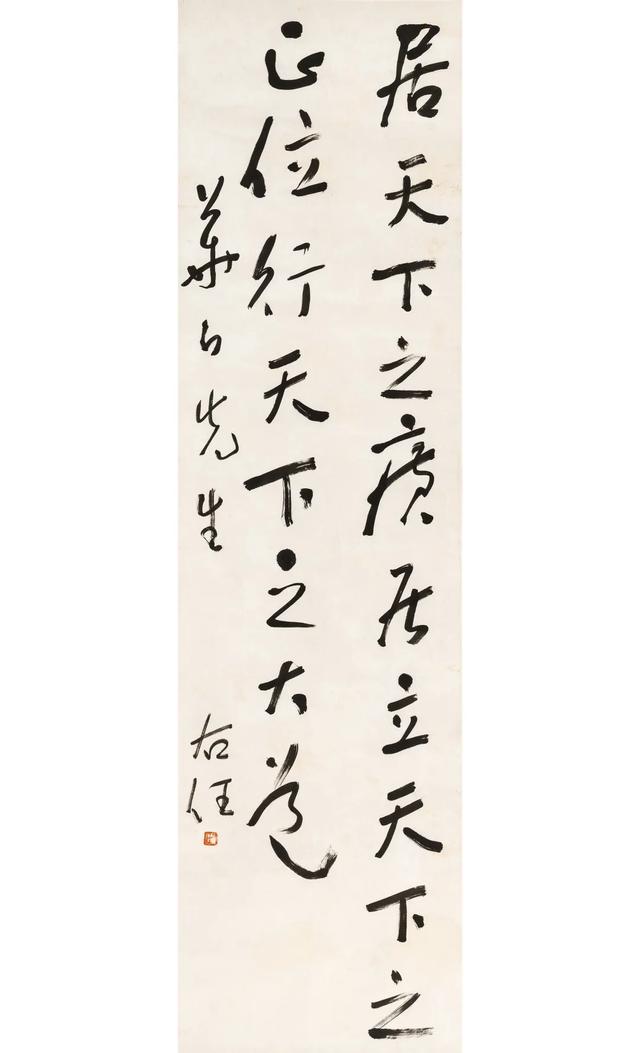 居天下之廣居立天下之
正位行天下之大道
先生
右任